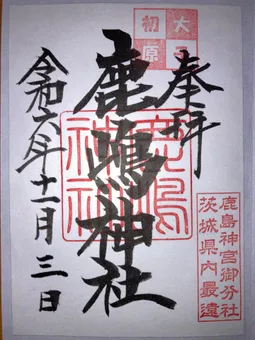 大子
初原
奉拝
鹿嶋神社
鹿嶋神社
令和六年十一月三日
鹿島神宮御分社
茨城県内最遠